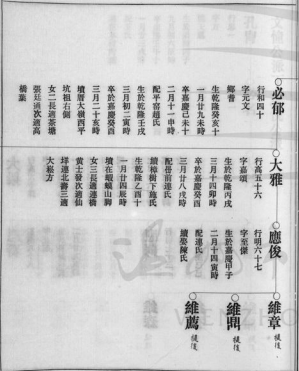 必郁
行和四十
字元文
鄉耆
生於乾隆癸亥十
一月廿九未時
卒嘉慶己未十
二月十一申時
配平窰趙氏
生於乾隆壬戌
三月初二寅時
卒於嘉慶癸酉
三月二十亥時
墳厝大嶺西平
坑祖右側
女二長適茶塘
張廷通次適高
橋葉
大雅
行高五十六
字嘉頌
生於乾隆丙戌
三月十四卯時
卒於嘉慶癸酉
三月廿八戌時
配嶴前連氏
續樟樹下施氏
生乾隆乙酉十
一月廿四辰時
墳在蝦蟆山脚
女三長適連橋
黄士發次適仙
坪連北壽三適
大嶴方
應俊
行明六十七
字至傑
生於嘉慶甲子
二月十四寅時
配連氏
續娶陳氏
維章 後後
維鼎 後後
維薦 後後
WENZHO